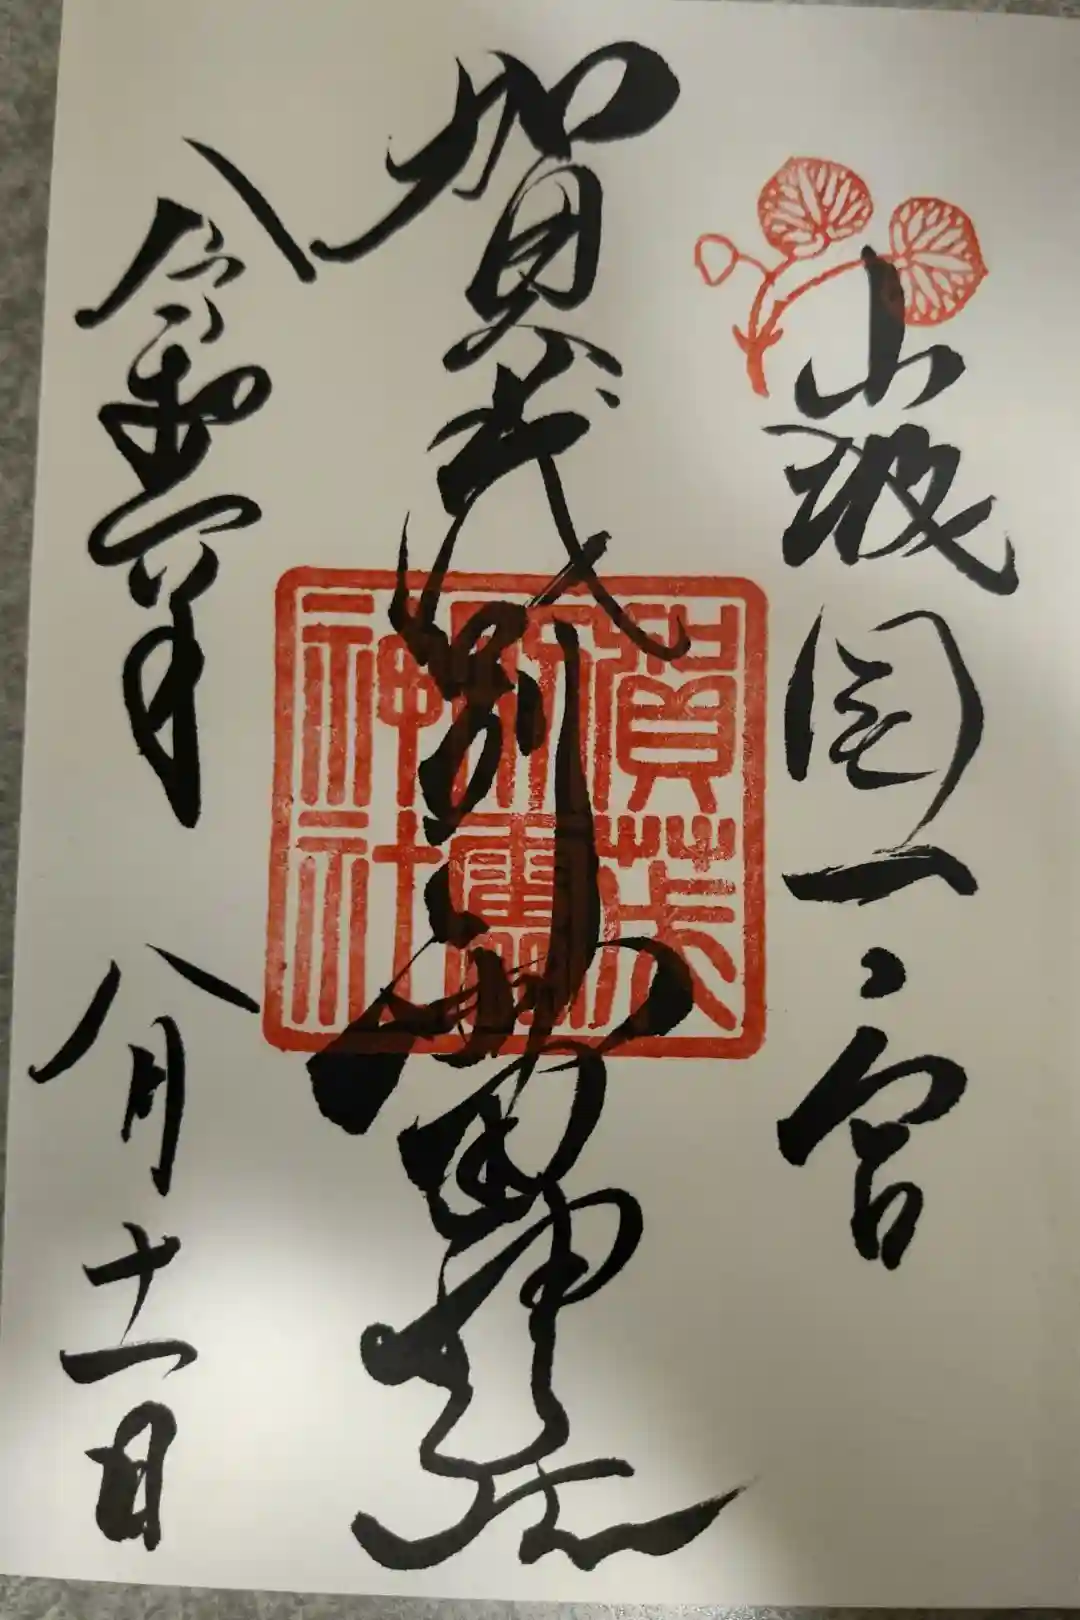 山城国一ノ宮
賀茂別雷神社
令和六年 八月十一日
賀茂
別雷
神社